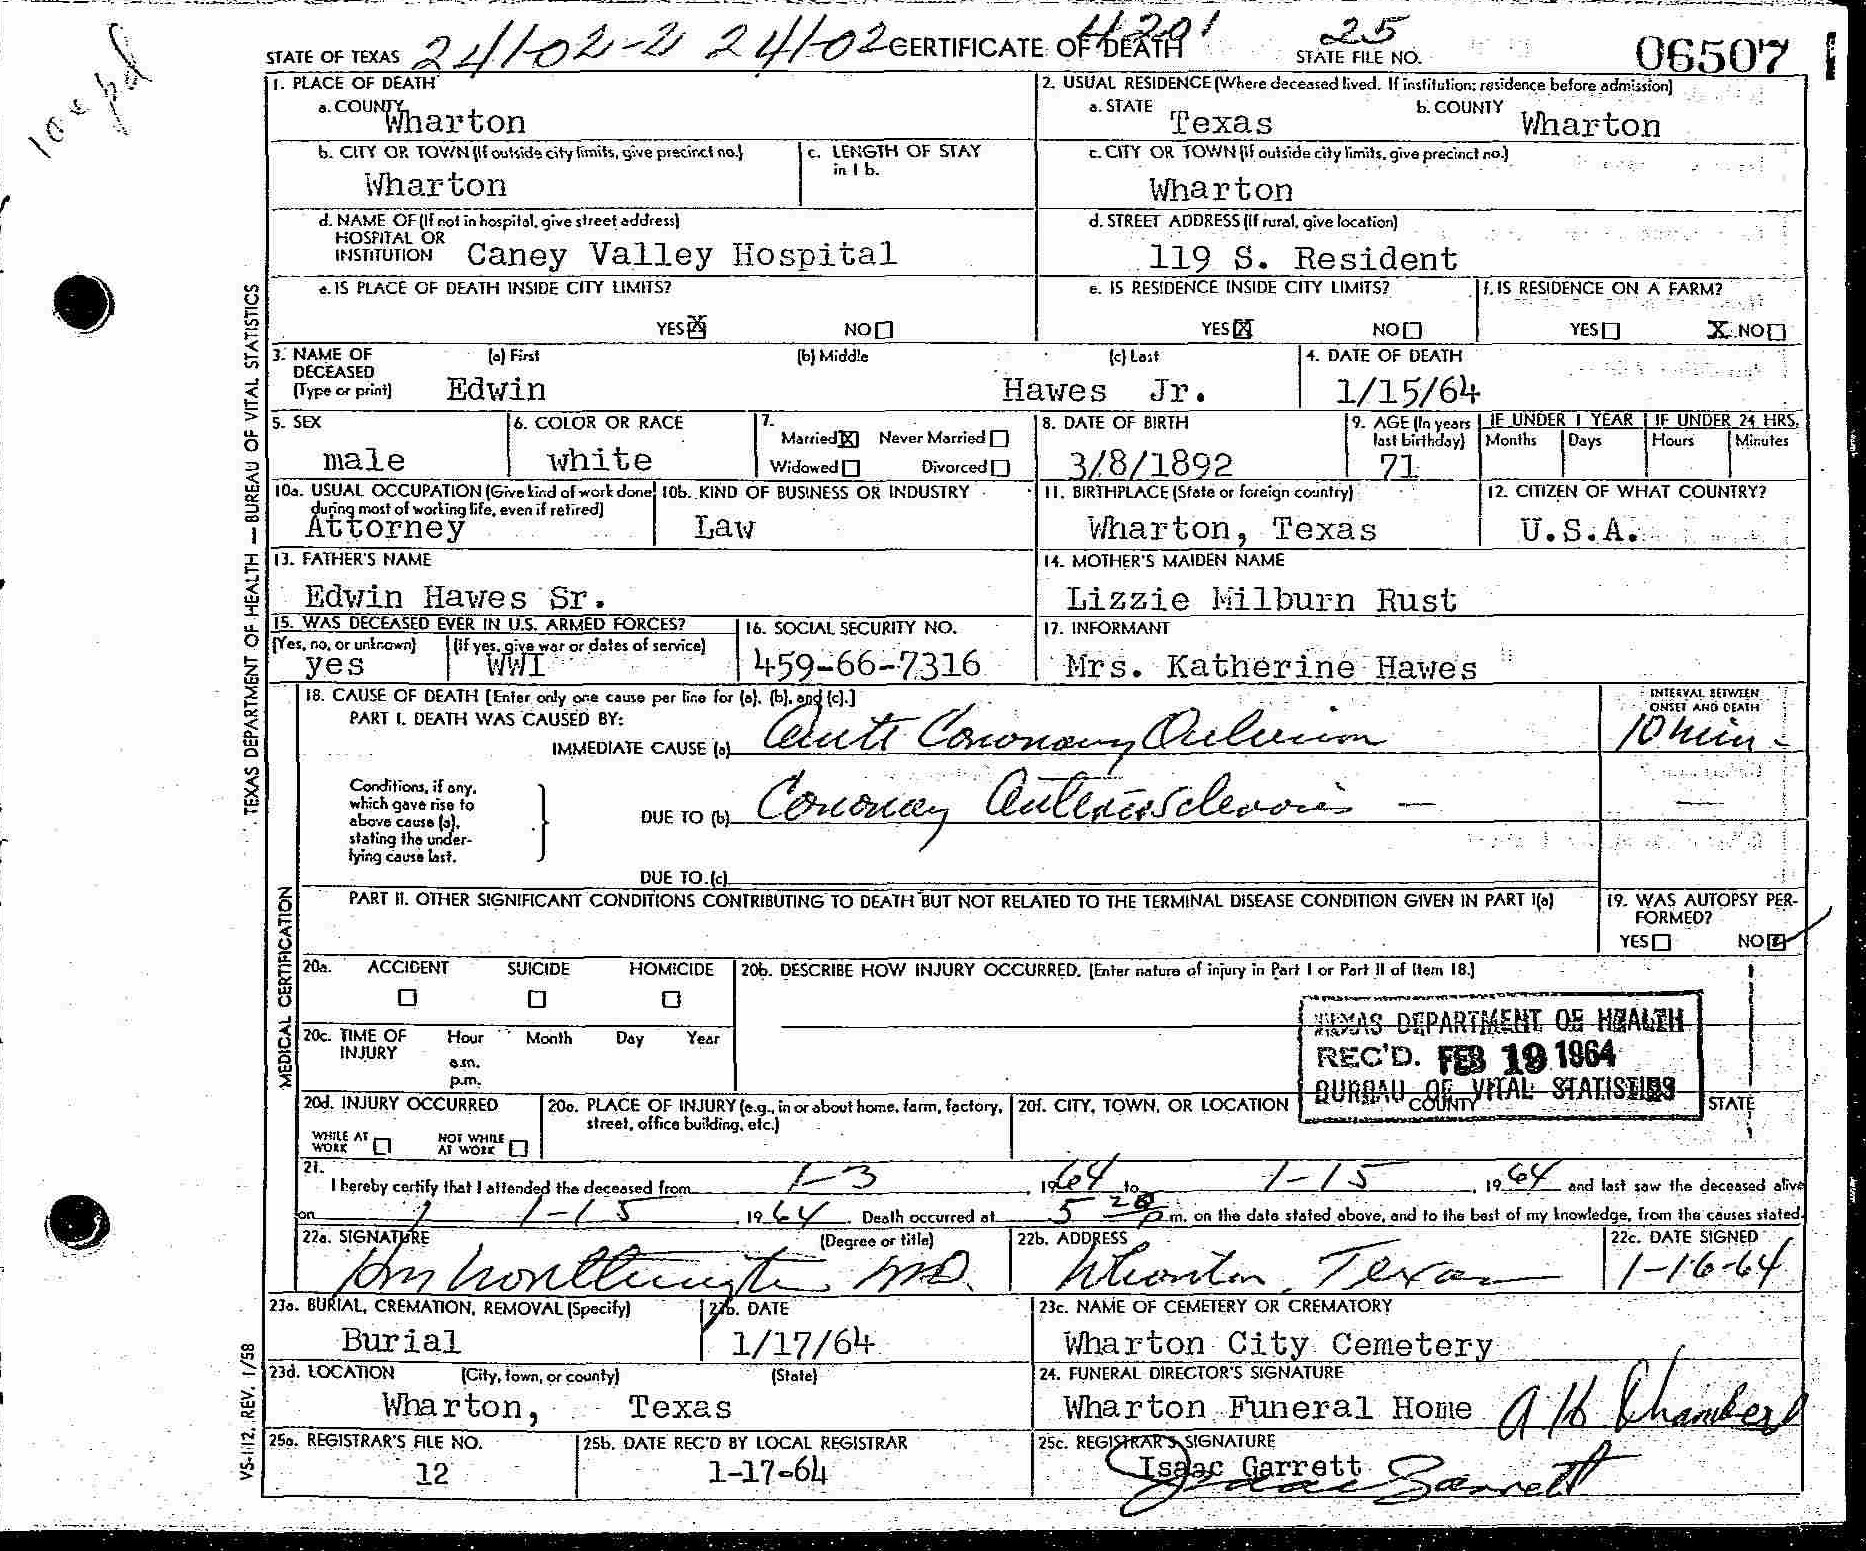 100 pd
24102-2 24102 4201 25
STATE OF TEXAS CERTIFICATE OF DEATH STATE FILE NO. 06507
1. PLACE OF DEATH
a. COUNTY
Wharton
2. USUAL RESIDENCE (Where deceased lived. If institution: residence before admission)
a. STATE b. COUNTY
Texas Wharton
b. CITY OR TOWN (If outside city limits, give precinct no.) c. LENGTH OF STAY in 1 b.
Wharton
c. CITY OR TOWN (If outside city limits, give precinct no.)
Wharton
d. NAME OF (If not in hospital, give street address)
HOSPITAL OR
INSTITUTION Caney Valley Hospital
d. STREET ADDRESS (If rural, give location)
119 S. Resident
e. IS PLACE OF DEATH INSIDE CITY LIMITS?
YES X NO
e. IS RESIDENCE INSIDE CITY LIMITS?
YES X NO
f. IS RESIDENCE ON A FARM?
YES X NO
3. NAME OF DECEASED (Type or print) (a) First (b) Middle (c) Last
Edwin Hawes Jr.
4. DATE OF DEATH
1/15/64
5. SEX
male
6. COLOR OR RACE
white
7.
Married X Never Married
Widowed Divorced
8. DATE OF BIRTH
3/8/1892
9. AGE (In years last birthday)
71
IF UNDER 1 YEAR IF UNDER 24 HRS.
Months Days Hours Minutes
10a. USUAL OCCUPATION (Give kind of work done during most of working life, even if retired)
Attorney
10b. KIND OF BUSINESS OR INDUSTRY
Law
11. BIRTHPLACE (State or foreign country)
Wharton, Texas
12. CITIZEN OF WHAT COUNTRY?
U.S.A.
13. FATHER'S NAME
Edwin Hawes Sr.
14. MOTHER'S MAIDEN NAME
Lizzie Milburn Rust
15. WAS DECEASED EVER IN U.S. ARMED FORCES?
(Yes, no, or unknown) (If yes, give war or dates of service)
yes WWI
16. SOCIAL SECURITY NO.
459-66-7316
17. INFORMANT
Mrs. Katherine Hawes
18. CAUSE OF DEATH [Enter only one cause per line for (a), (b), and (c).]
PART I. DEATH WAS CAUSED BY:
IMMEDIATE CAUSE (a) Acute Coronary Occlusion
INTERVAL BETWEEN ONSET AND DEATH
10 min -
Conditions, if any,
which gave rise to
above cause (a),
stating the under-
lying cause last.
DUE TO (b) Coronary Arteriosclerosis —
DUE TO (c)
PART II. OTHER SIGNIFICANT CONDITIONS CONTRIBUTING TO DEATH BUT NOT RELATED TO THE TERMINAL DISEASE CONDITION GIVEN IN PART I(a)
19. WAS AUTOPSY PER-
FORMED?
YES NO
20a. ACCIDENT SUICIDE HOMICIDE
20b. DESCRIBE HOW INJURY OCCURRED. (Enter nature of injury in Part I or Part II of Item 18.)
20c. TIME OF INJURY Hour Month Day Year
a.m.
p.m.
TEXAS DEPARTMENT OF HEALTH
REC'D. FEB 19 1964
BUREAU OF VITAL STATISTICS
20d. INJURY OCCURRED
WHILE AT WORK NOT WHILE AT WORK
20e. PLACE OF INJURY (e.g., in or about home, farm, factory,
street, office building, etc.)
20f. CITY, TOWN, OR LOCATION COUNTY STATE
21.
I hereby certify that I attended the deceased from 1-3, 1964 to 1-15, 1964 and last saw the deceased alive
on 1-15, 1964. Death occurred at 5 20 p.m. on the date stated above, and to the best of my knowledge, from the causes stated.
22a. SIGNATURE (Degree or title)
Worthington M.D.
22b. ADDRESS
Wharton, Texas
22c. DATE SIGNED
1-16-64
23a. BURIAL, CREMATION, REMOVAL (Specify)
Burial
23b. DATE
1/17/64
23c. NAME OF CEMETERY OR CREMATORY
Wharton City Cemetery
23d. LOCATION (City, town, or county) (State)
Wharton, Texas
24. FUNERAL DIRECTOR'S SIGNATURE
Wharton Funeral Home A H Chambers
25a. REGISTRAR'S FILE NO.
12
25b. DATE REC'D BY LOCAL REGISTRAR
1-17-64
25c. REGISTRAR'S SIGNATURE
Isaac Garrett
Isaac Garrett
TEXAS DEPARTMENT OF HEALTH — BUREAU OF VITAL STATISTICS
MEDICAL CERTIFICATION
VS-112, REV. 1/58